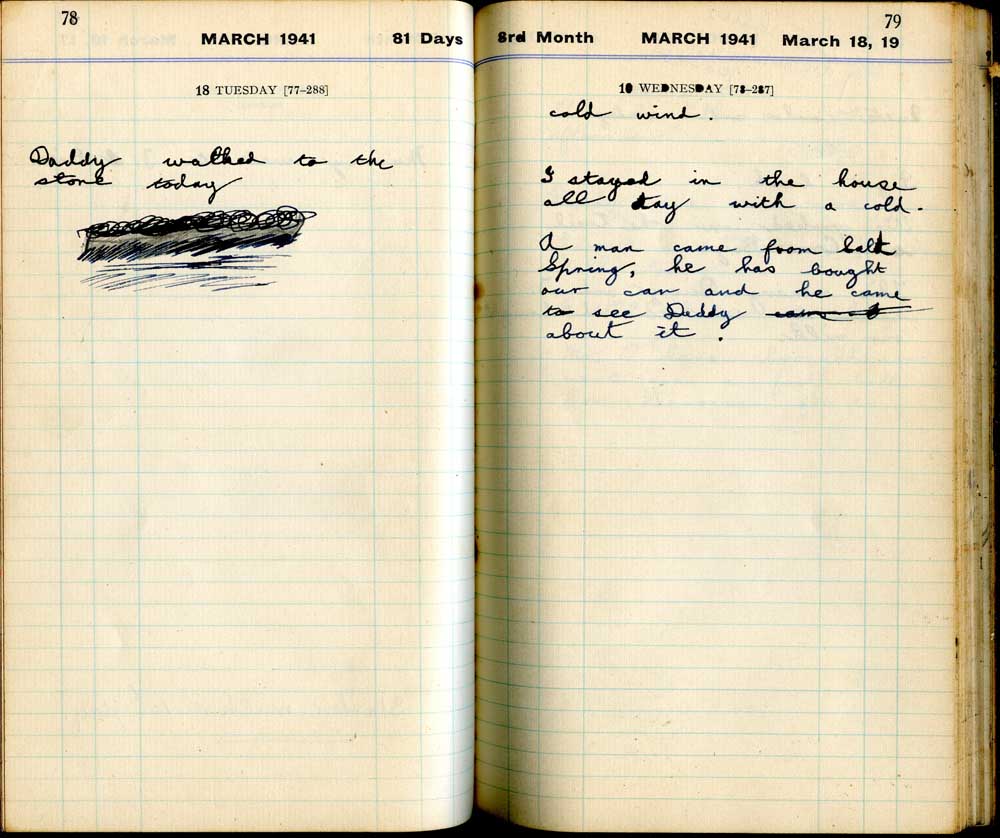 78
MARCH 1941 81 Days
18 TUESDAY [77–288]
Daddy walked to the
store today
79
3rd Month MARCH 1941 March 18, 19
19 WEDNESDAY [78–287]
cold wind.
I stayed in the house
all day with a cold.
A man came from Salt
Spring, he has bought
our car and he came
to see Daddy
about it.